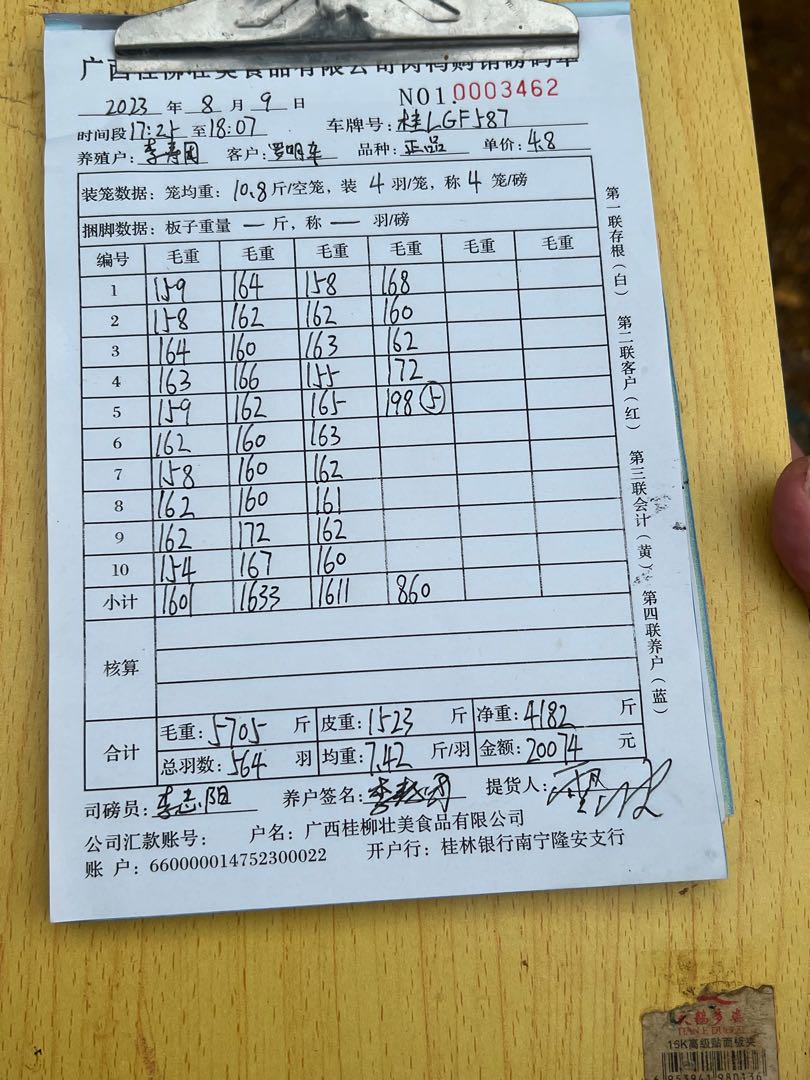 广西桂柳壮美食品有限公司肉鸭购销磅码单
2023 年 8 月 9 日 NO1.0003462
时间段17:25至18:07 车牌号:桂LGF587
养殖户: 李寿国 客户: 罗明车 品种: 正品 单价: 4.8
装笼数据: 笼均重: 10.8斤/空笼, 装 4 羽/笼, 称 4 笼/磅
捆脚数据: 板子重量 — 斤, 称 — 羽/磅
编号 毛重 毛重 毛重 毛重 毛重 毛重
1 159 164 158 168
2 158 162 162 160
3 164 160 163 162
4 163 166 155 172
5 159 162 165 198 ⑤
6 162 160 163
7 158 160 162
8 162 160 161
9 162 172 162
10 154 167 160
小计 1601 1633 1611 860
核算
合计 毛重: 5705 斤 皮重: 1523 斤 净重: 4182 斤
总羽数: 564 羽 均重: 7.42 斤/羽 金额: 20074 元
司磅员: 李志阳 养户签名: 提货人:
公司汇款账号: 户名: 广西桂柳壮美食品有限公司
账 户: 660000014752300022 开户行: 桂林银行南宁隆安支行
第一联存根(白) 第二联客户(红) 第三联会计(黄) 第四联养户(蓝)
TIAN E DUO
16K高级贴面板夹
6 953961 980136